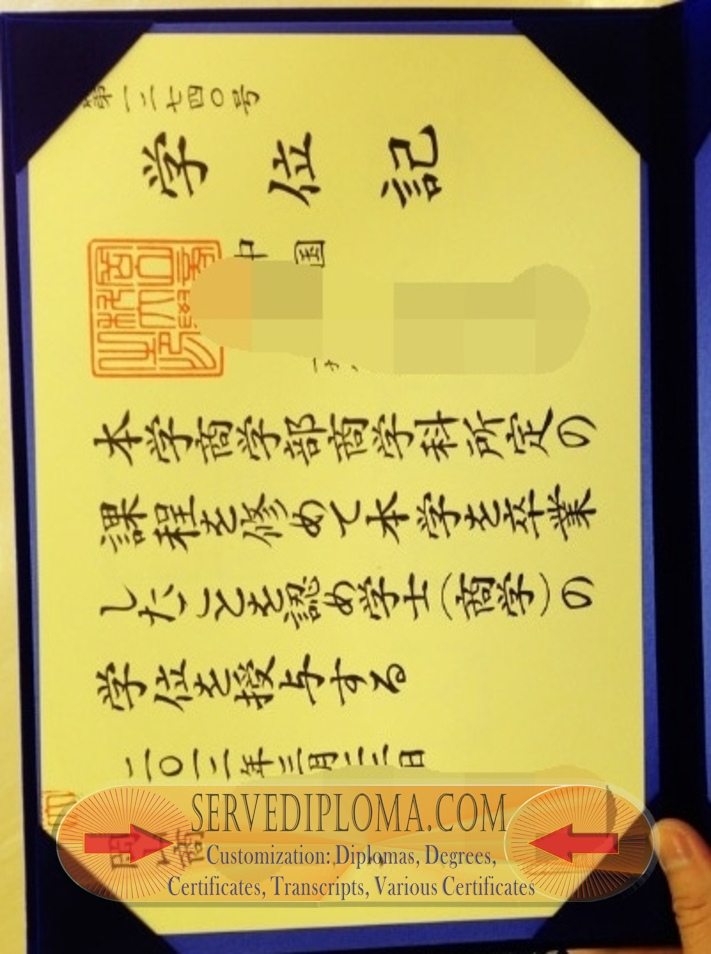 第一二七四〇号
学位記
中国
本学商学部商学科所定の
課程を修めて本学を卒業
したことを認め学士(商学)の
学位を授与する
二〇一二年三月二三日
SERVEDIPLOMA.COM
Customization: Diplomas, Degrees,
Certificates, Transcripts, Various Certificates